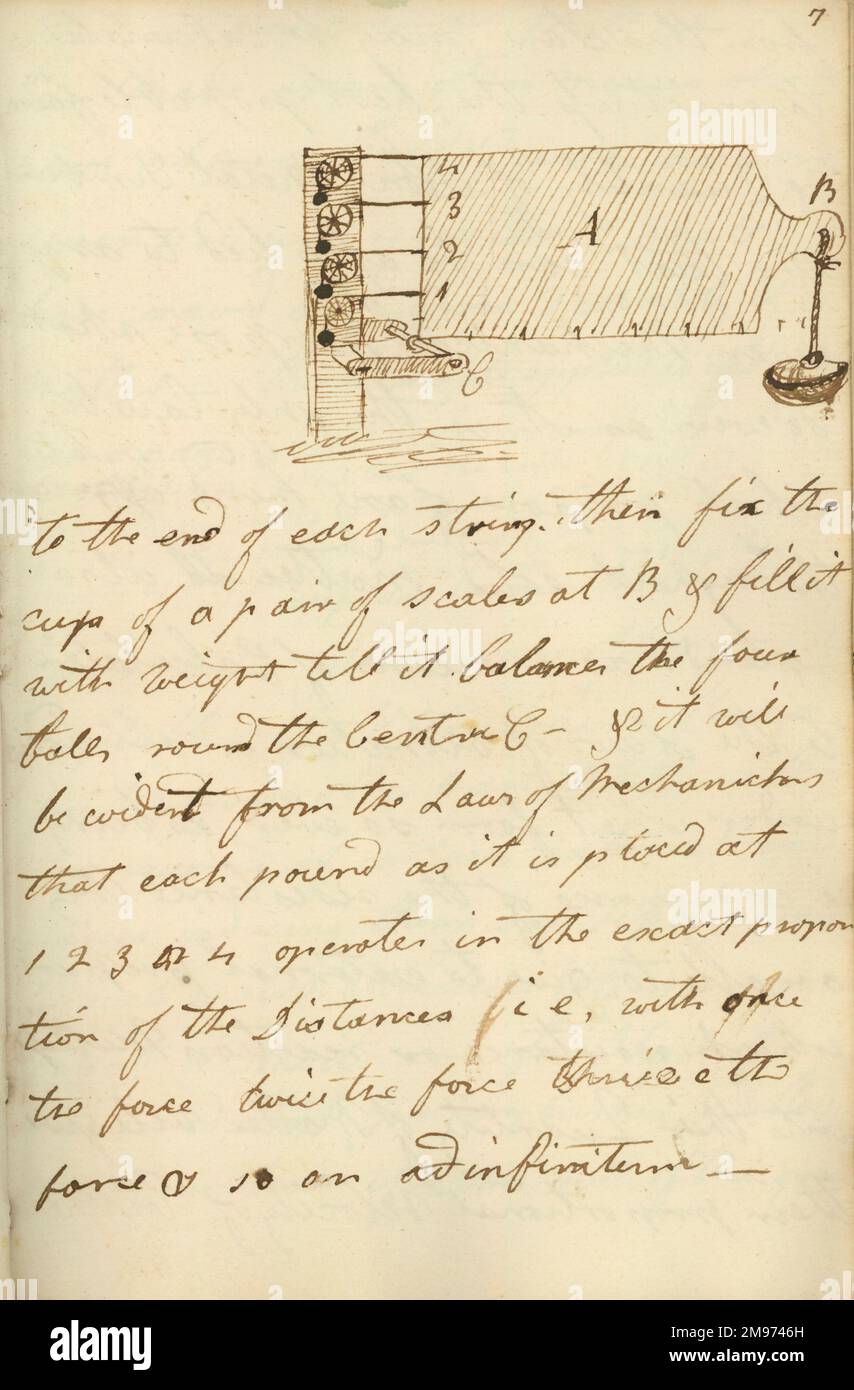 7
4
3
2
1
A
B
C
1 1 1 1 1 1
to the end of each string. then fix the
cup of a pair of scales at B & fill it
with weight till it balances the four
balls round the Centre C – & it will
be evident from the Laws of Mechanicks
that each pound as it is placed at
1 2 3 or 4 operates in the exact propor
tion of the Distances i e, with once
the force twice the force thrice the
force & so on ad infinitum —
alamy
Image ID: 2M9746H
www.alamy.com